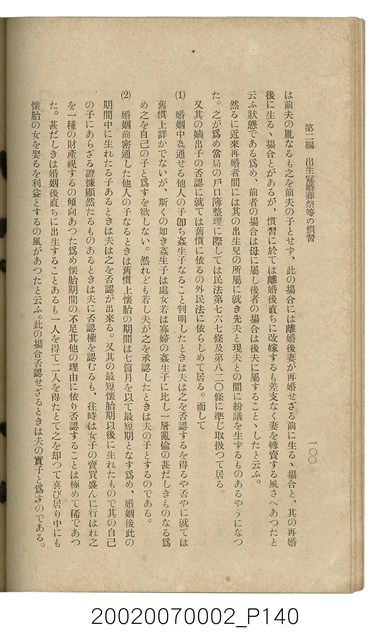 第二編 出生冠婚葬祭等の慣習
一〇〇
は前夫の胤なるも之を前夫の子とせず、此の場合には離婚後妻が再婚せざる前に生るゝ場合と、其の再婚
後に生るゝ場合とがあるが、慣習に於ては離婚後直ちに改嫁するも差支なく妻を轉賣する風さへあつたと
云ふ狀態である爲め、前者の場合は母に屬し後者の場合は後夫に屬することゝしたと云ふ。
然るに近來再婚者間には其の出生兒の所屬に就き先夫と現夫との間に紛議を生ずるものあるやうになつ
た。之が爲め當局の戶口簿整理に際しては民法第七六七條及第八二〇條に準じ取扱つて居る。
又其の嫡出子の否認に就ては舊慣に依るの外民法に依らしめて居る。而して
(1) 婚姻中姦通せる他人の子卽ち姦生子なること判明したときは夫は之を否認するを得るや否やに就ては
舊慣上詳かでないが、斯くの如き姦生子は處女若は寡婦の姦生子に比し一層亂倫の甚だしきものなる爲
め之を自己の子と爲すを欲しない。然れども若し夫が之を承認したときは夫の子とするのである。
(2) 婚姻前密通した他人の子なるときは舊慣上懷胎の期間は七箇月を以て最短期となす爲め、婚姻後此の
期間中に生れたる子あるときは夫は之を否認が出來る。又其の最短懷胎期以後に生れたもので其の自己
の子にあらざる證據顯然たるものあるときは夫に否認權を認むるも、往時は女子の賣買盛んに行はれ之
を一種の財產視するの傾向あつた爲め懷胎期間の不足其他の理由に依り否認することは極めて稀であつ
た。甚だしきは婚姻後直ちに出生することあるも一人を得て二人を得たとて之を却つて喜び居り中にも
懷胎の女を娶るを利益とするの風があつたと云ふ。此の場合否認せざるときは夫の實子と爲すのである。
20020070002_P140